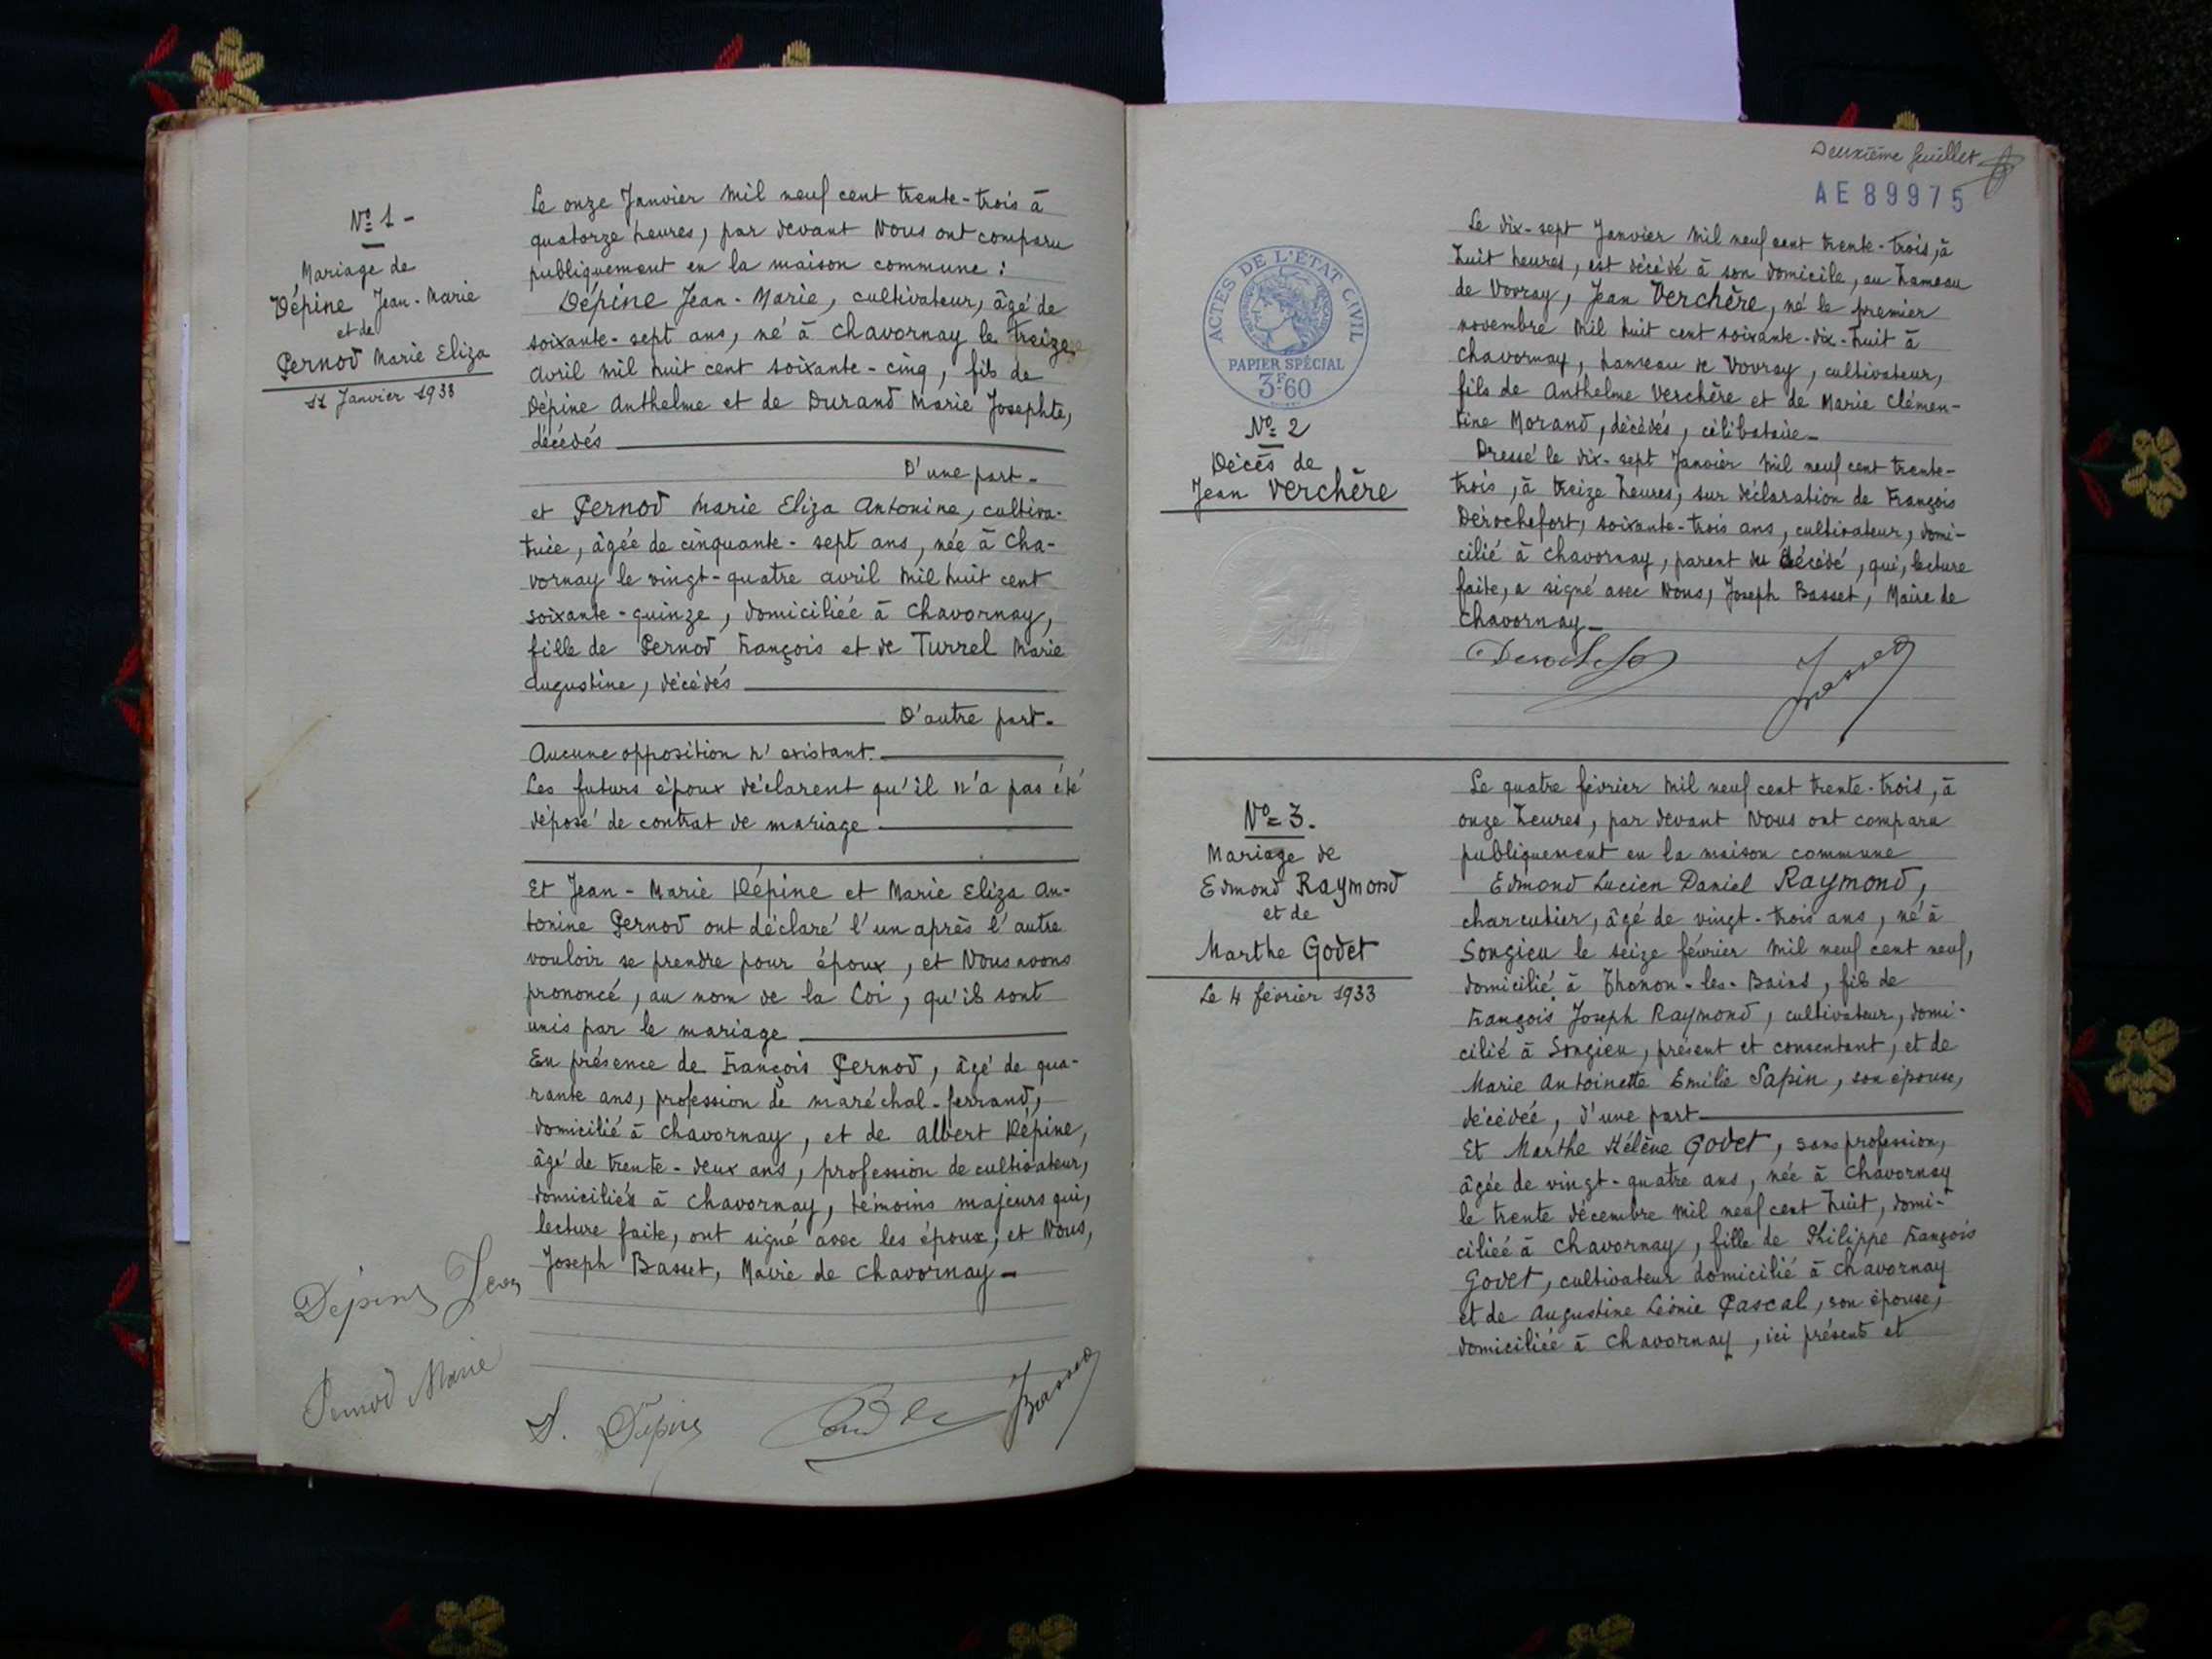 Nº 1 -
Mariage de
Dépine Jean-Marie
et de
Pernod Marie Eliza
11 Janvier 1933
Le onze Janvier mil neuf cent trente-trois à
quatorze heures, par devant Nous ont comparu
publiquement en la maison commune :
Dépine Jean-Marie, cultivateur, âgé de
soixante-sept ans, né à Chavornay le treize
avril mil huit cent soixante-cinq, fils de
Dépine Anthelme et de Durand Marie Josephte,
décédés
D'une part-
et Pernod Marie Eliza Antonine, cultiva-
trice, âgée de cinquante-sept ans, née à Cha-
vornay le vingt-quatre avril mil huit cent
soixante-quinze, domiciliée à Chavornay,
fille de Pernod François et de Turrel Marie
Augustine, décédés
D'autre part-
Aucune opposition n'existant.
Les futurs époux déclarent qu'il n'a pas été
déposé de contrat de mariage
Et Jean-Marie Dépine et Marie Eliza An-
tonine Pernod ont déclaré l'un après l'autre
vouloir se prendre pour époux, et Nous avons
prononcé, au nom de la Loi, qu'ils sont
unis par le mariage
En présence de François Pernod, âgé de qua-
rante ans, profession de maréchal-ferrand,
domicilié à Chavornay, et de Albert Dépine,
âgé de trente-deux ans, profession de cultivateur,
domiciliés à Chavornay, témoins majeurs qui,
lecture faite, ont signé avec les époux, et Nous,
Joseph Basset, Maire de Chavornay-
Dépine Jean
Pernod Marie
Dépine
Basset
Deuxième feuillet
AE 89975
ACTES DE L'ÉTAT CIVIL
PAPIER SPÉCIAL
3F60
Nº 2
Décès de
Jean Verchère
Le dix-sept Janvier mil neuf cent trente-trois, à
huit heures, est décédé à son domicile, au hameau
de Vovray, Jean Verchère, né le premier
novembre mil huit cent soixante-dix-huit à
Chavornay, hameau de Vovray, cultivateur,
fils de Anthelme Verchère et de Marie Clémen-
tine Morand, décédés, célibataire-
Dressé le dix-sept Janvier mil neuf cent trente-
trois, à treize heures, sur déclaration de François
Dérochefort, soixante-trois ans, cultivateur, domi-
cilié à Chavornay, parent du décédé, qui, lecture
faite, a signé avec Nous, Joseph Basset, Maire de
Chavornay-
Basset
Nº 3.
Mariage de
Edmond Raymond
et de
Marthe Godet
Le 4 février 1933
Le quatre février mil neuf cent trente-trois, à
onze heures, par devant Nous ont comparu
publiquement en la maison commune
Edmond Lucien Daniel Raymond,
charcutier, âgé de vingt-trois ans, né à
Songieu le seize février mil neuf cent neuf,
domicilié à Thonon-les-Bains, fils de
François Joseph Raymond, cultivateur, domi-
cilié à Songieu, présent et consentant, et de
Marie Antoinette Emilie Sapin, son épouse,
décédée, d'une part
Et Marthe Hélène Godet, sans profession,
âgée de vingt-quatre ans, née à Chavornay
le trente décembre mil neuf cent huit, domi-
ciliée à Chavornay, fille de Philippe François
Godet, cultivateur domicilié à Chavornay
et de Augustine Léonie Pascal, son épouse,
domiciliée à Chavornay, ici présents et